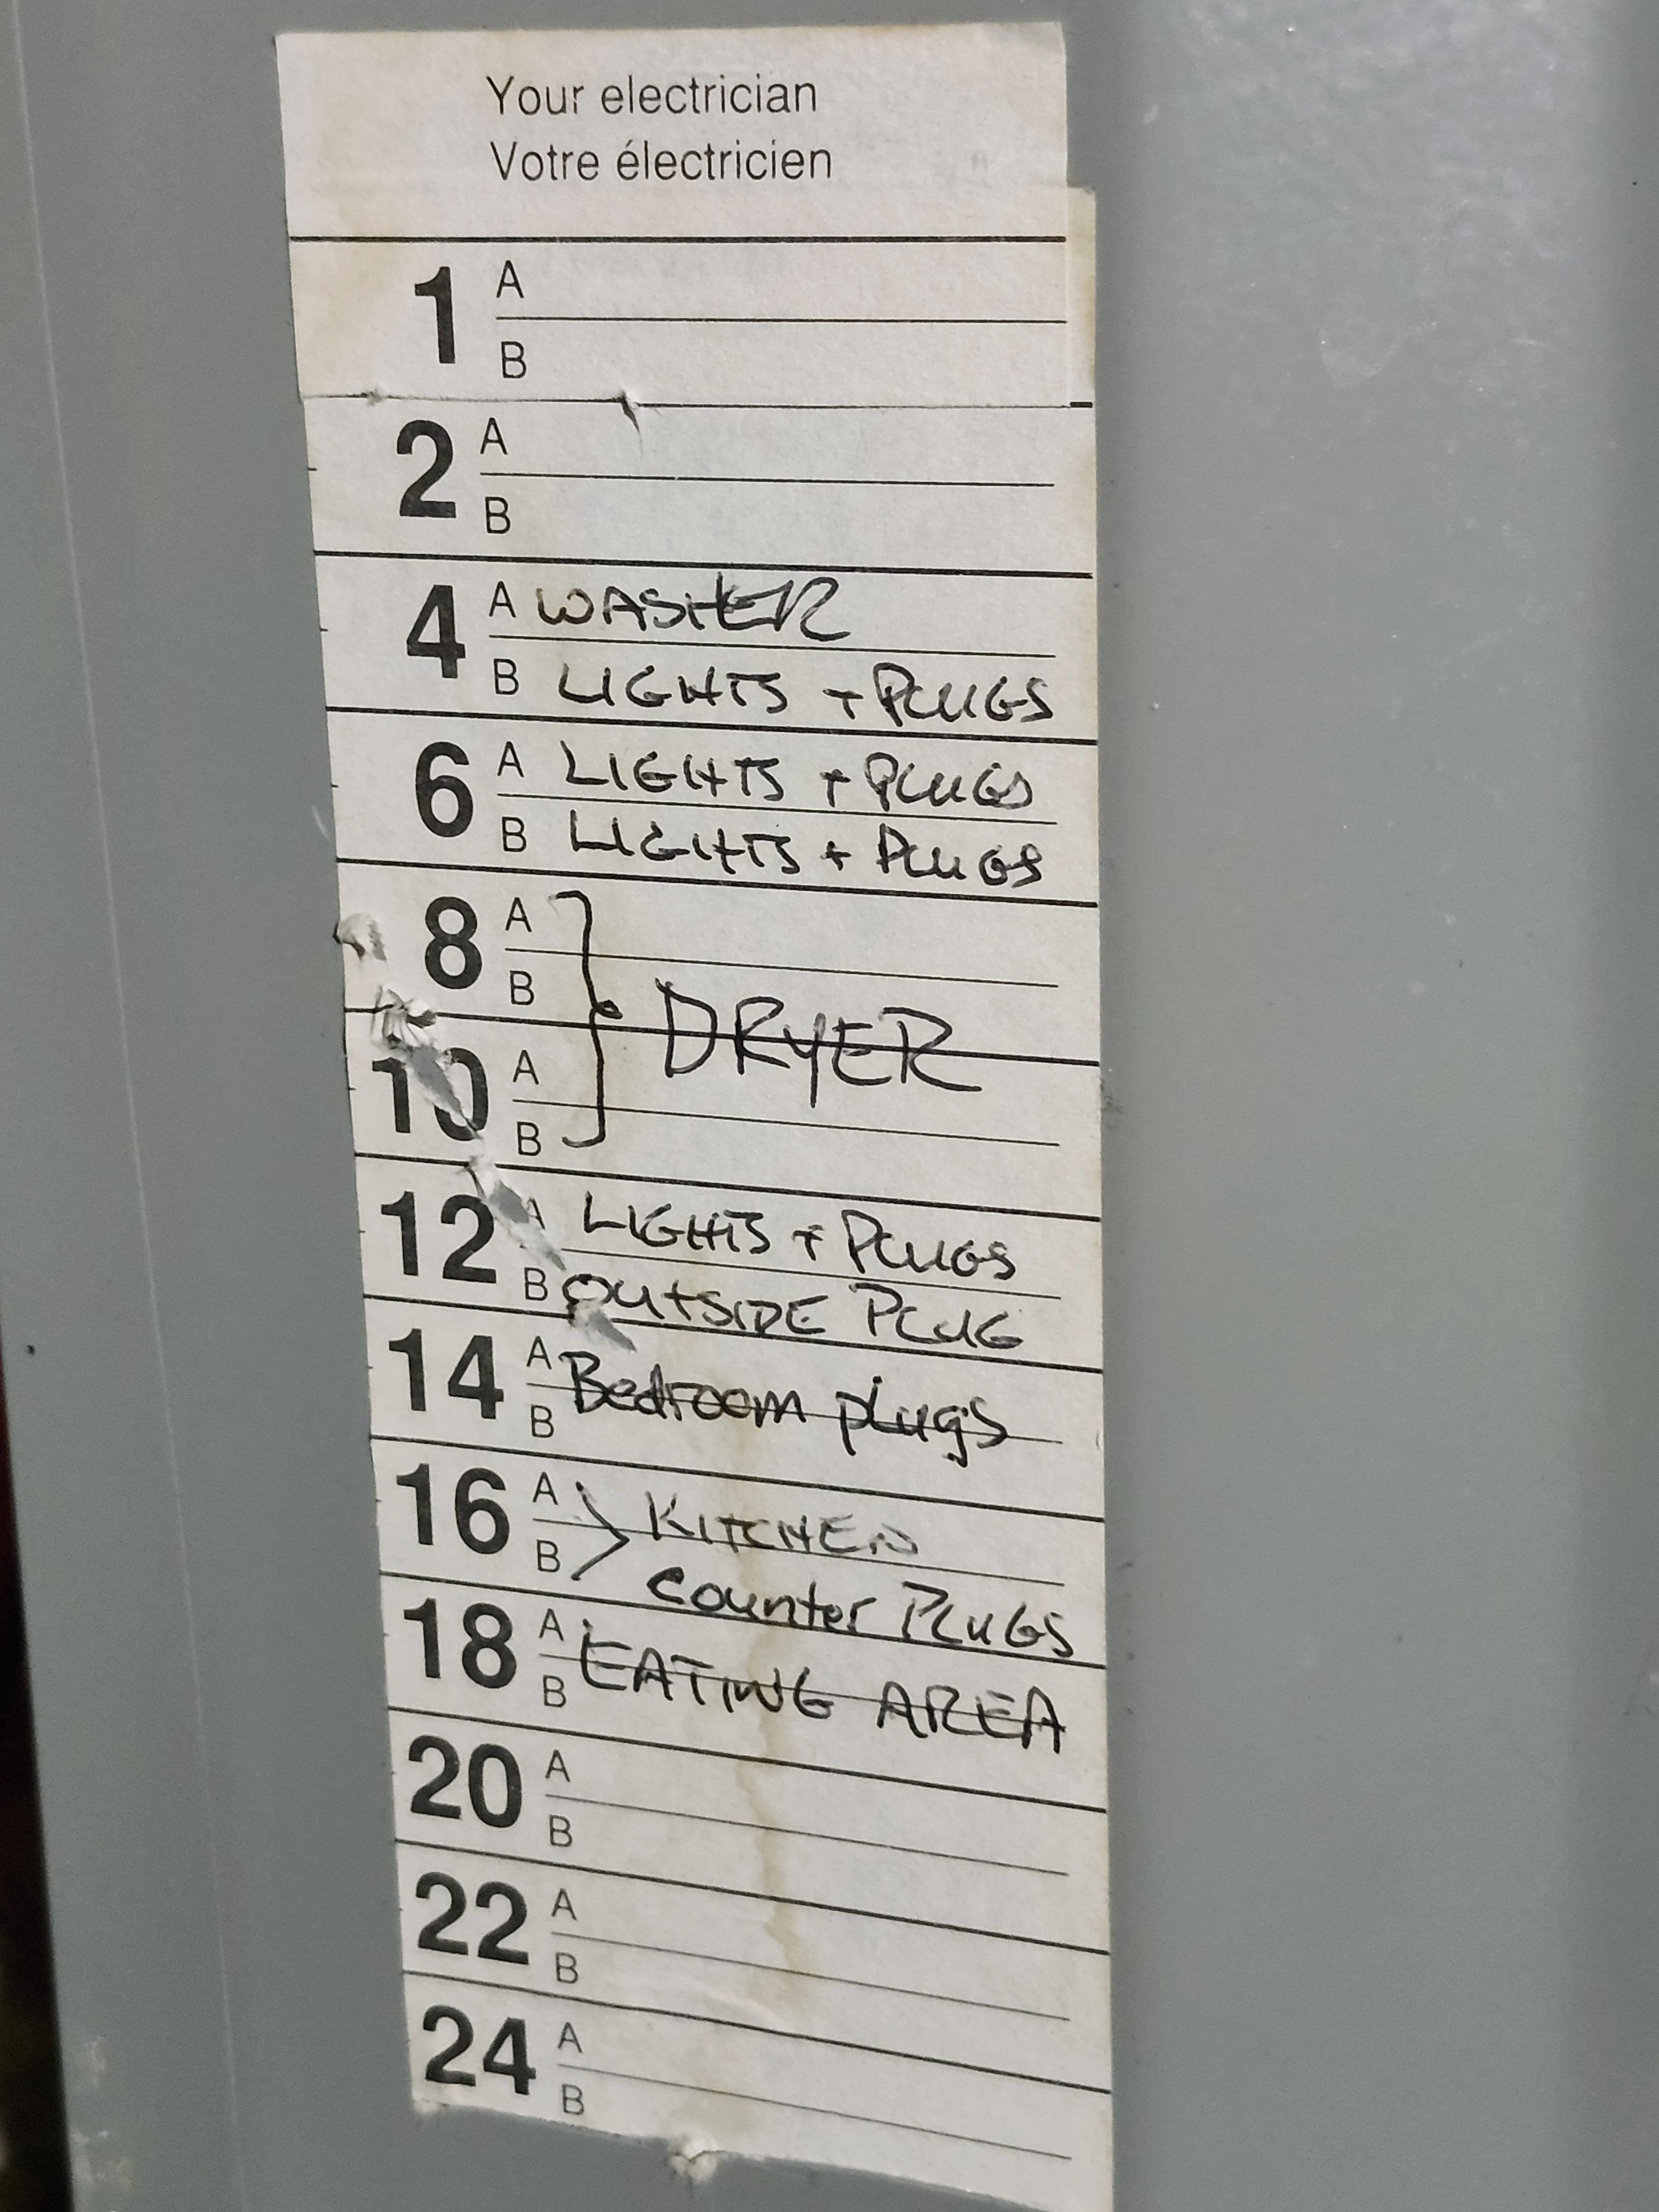 Your electrician
Votre électricien
1 A
B
2 A
B
4 A WASHER
B LIGHTS + PLUGS
6 A LIGHTS + PLUGS
B LIGHTS + PLUGS
8 A
B
DRYER
10 A
B
12 A LIGHTS + PLUGS
B OUTSIDE PLUG
14 A Bedroom plugs
B
16 A KITCHEN
B counter PLUGS
18 A EATING AREA
B
20 A
B
22 A
B
24 A
B